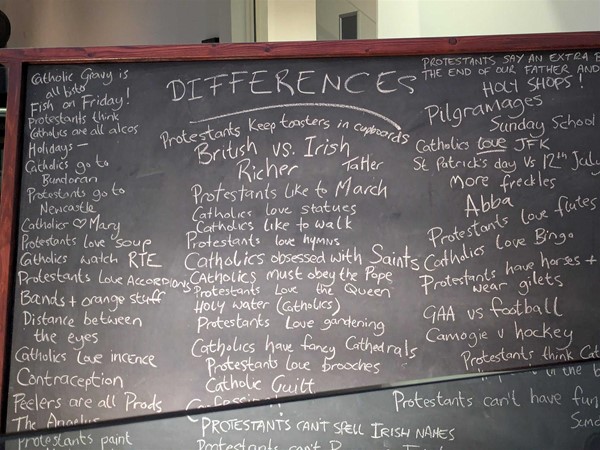 DIFFERENCES
Catholic Gravy is
all bisto
Fish on Friday!
Protestants think
Catholics are all alcos
Holidays —
Catholics go to
Bundoran
Protestants go to
Newcastle
Catholics ♡ Mary
Protestants Love Soup
Catholics watch RTE
Protestants Love ACCORDIONS
Bands + orange stuff
Distance between
the eyes
Catholics Love incence
Contraception
Peelers are all Prods
The Angelus
Protestants paint
Protestants keep toasters in cupboards
British vs. Irish
Richer Taller
Protestants like to March
Catholics love statues
Catholics like to walk
Protestants love hymns
Catholics obsessed with Saints
Catholics must obey the Pope
Protestants love the Queen
Holy water (Catholics)
Protestants Love gardening
Catholics have fancy Cathedrals
Protestants love brooches
Catholic Guilt
PROTESTANTS CAN'T SPELL IRISH NAMES
Protestants can't
PROTESTANTS SAY AN EXTRA
THE END OF OUR FATHER AND
HOLY SHOPS!
Pilgramages
Sunday School
Catholics LOVE JFK
St Patrick's day VS 12th July
More freckles
Abba
Protestants love flutes
Catholics Love Bingo
Protestants have horses +
wear gilets
GAA vs football
Camogie v hockey
Protestants think
Protestants can't have fun